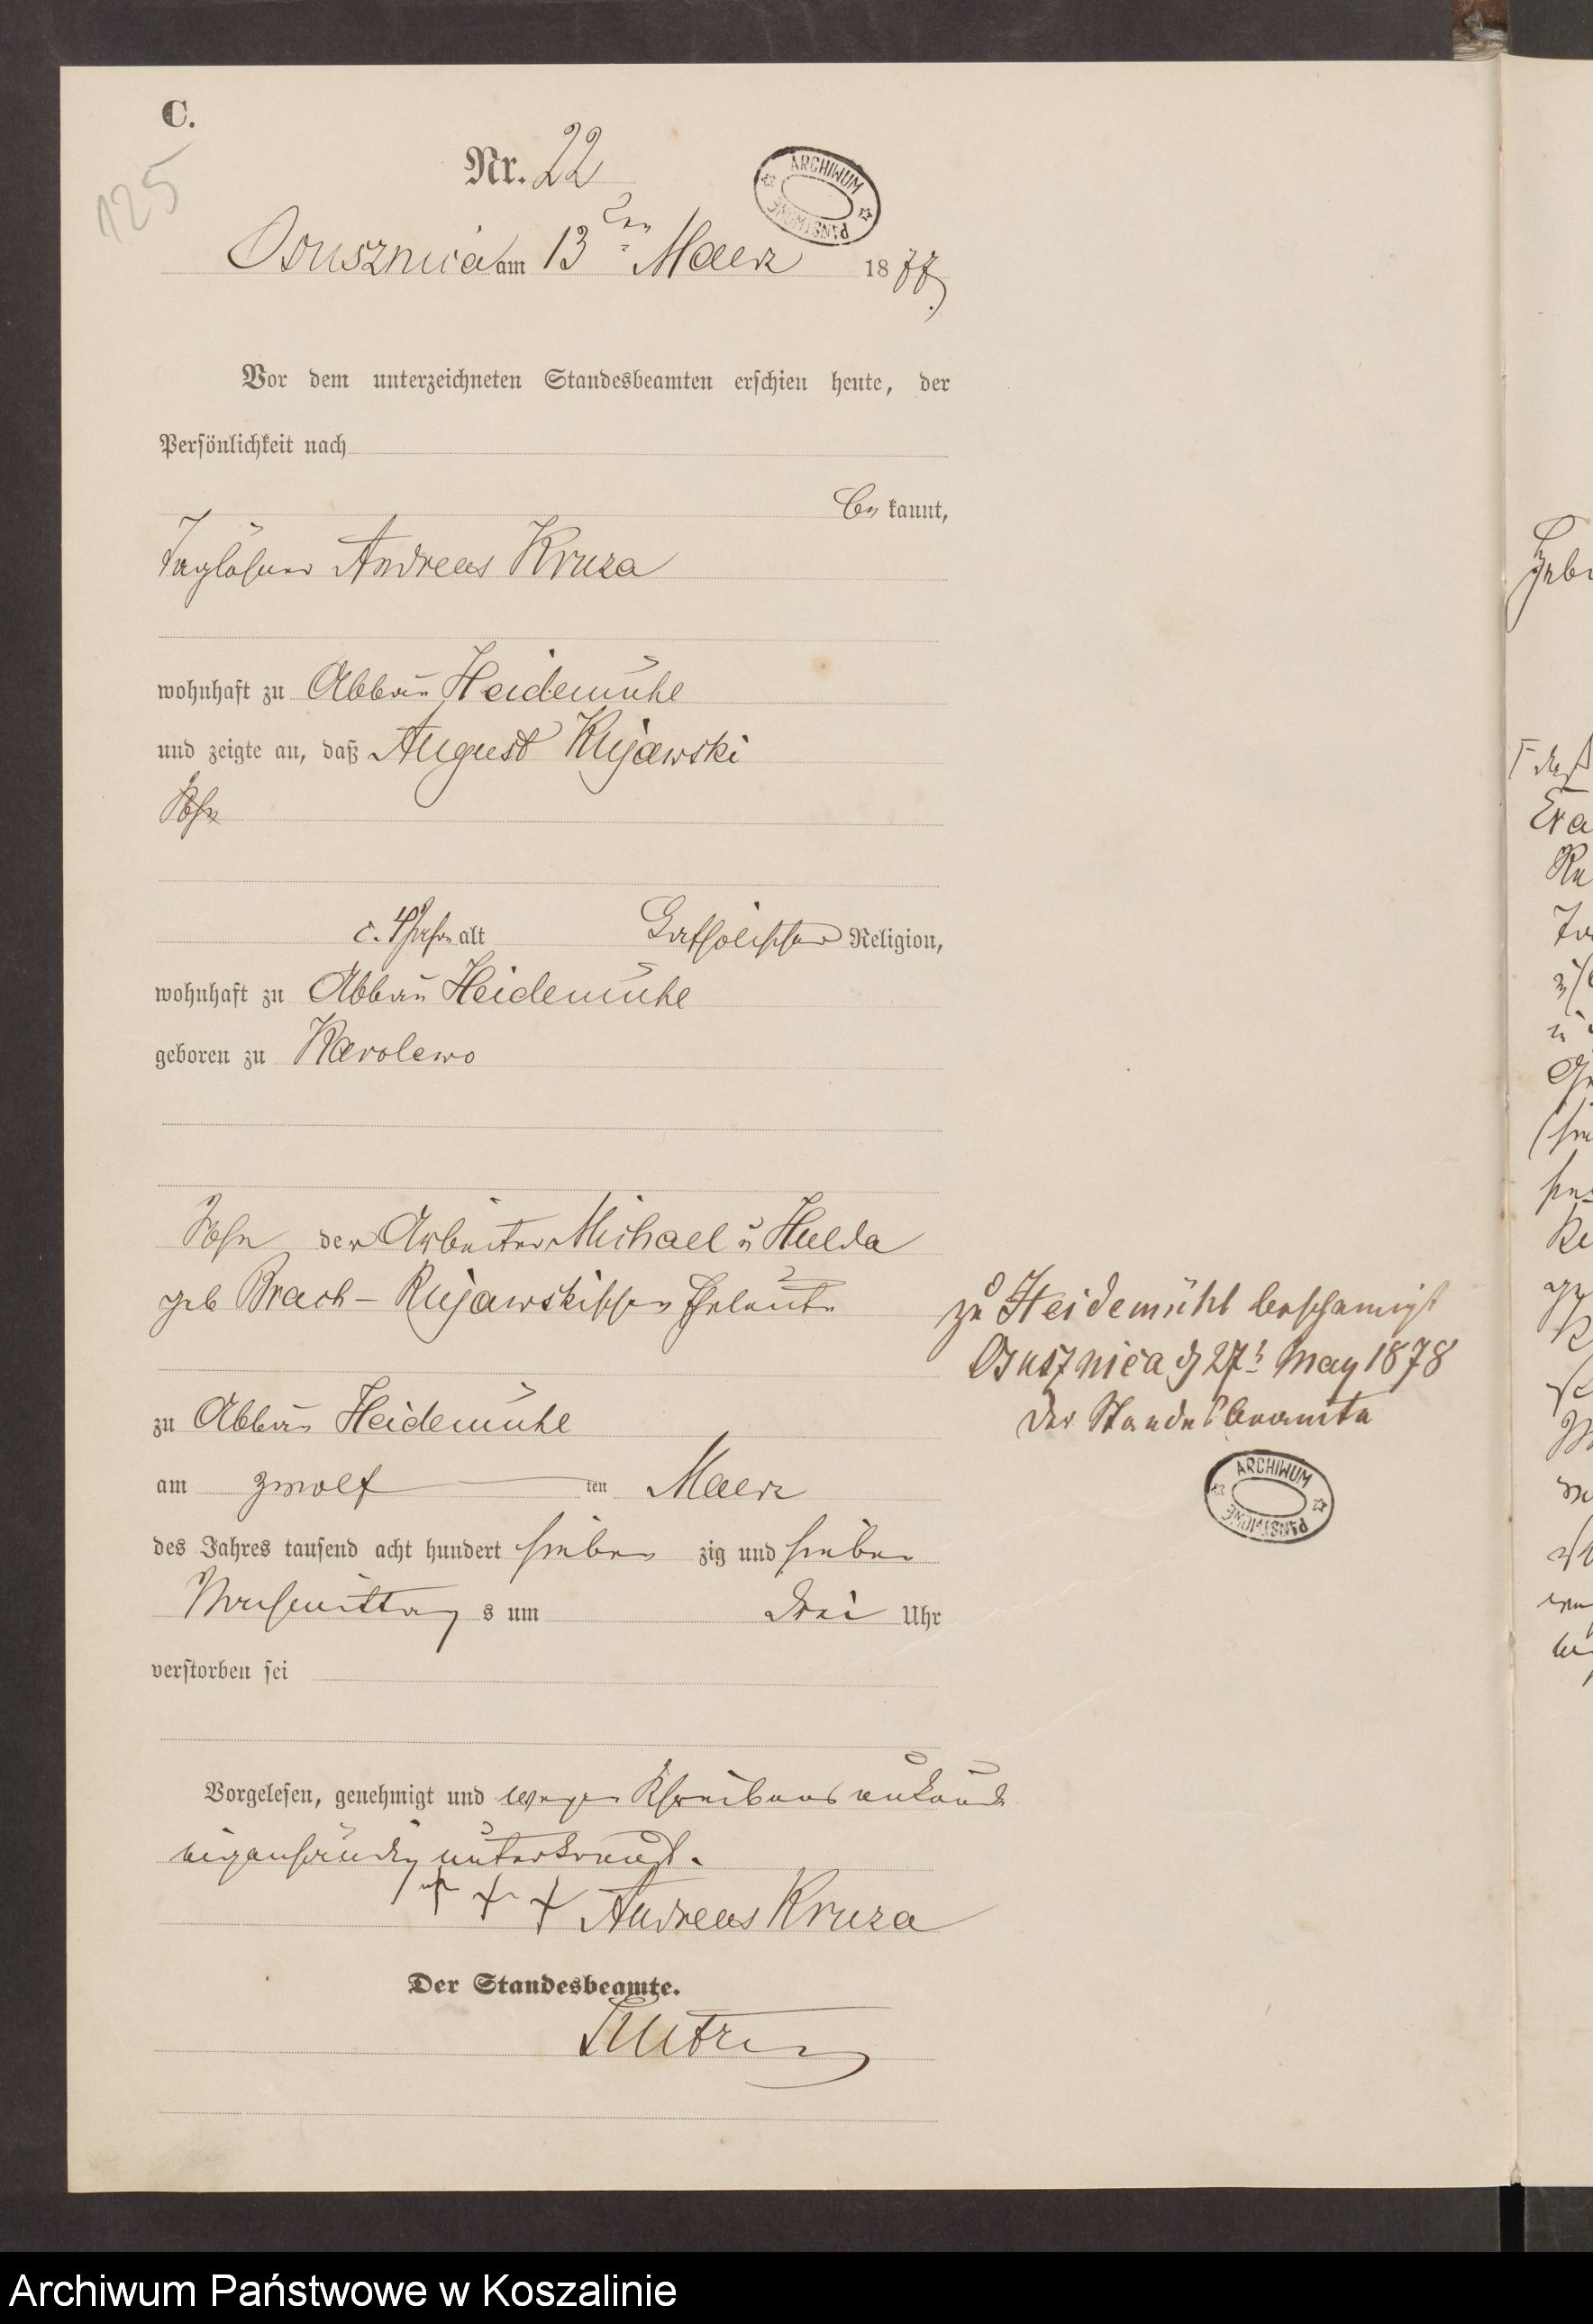 C.
125
Nr. 22
ARCHIWUM PAŃSTWOWE
Osusznica am 13ten Maerz 1877
Vor dem unterzeichneten Standesbeamten erschien heute, der
Persönlichkeit nach
be kannt,
Taglöhner Andreas Kruza
wohnhaft zu Abbau Heidemühe
und zeigte an, daß August Kujawski
Sohn
c. 4 Jahre alt Catholischer Religion,
wohnhaft zu Abbau Heidemühe
geboren zu Karolewo
Sohn der Arbeiter Michael u Hulda
geb Brach - Kujawskischen Eheleute
zu Heidemühl
Osusznica d 27t May 1878
Der Standesbeamte
zu Abbau Heidemühe
am zwölf ten Maerz
des Jahres tausend acht hundert sieben zig und sieben
Nachmittag s um drei Uhr
verstorben sei
ARCHIWUM PAŃSTWOWE
Vorgelesen, genehmigt und wegen Schreibens unkunde
eigenhändig unterkreuzt.
+ + + Andreas Kruza
Der Standesbeamte.
Archiwum Państwowe w Koszalinie